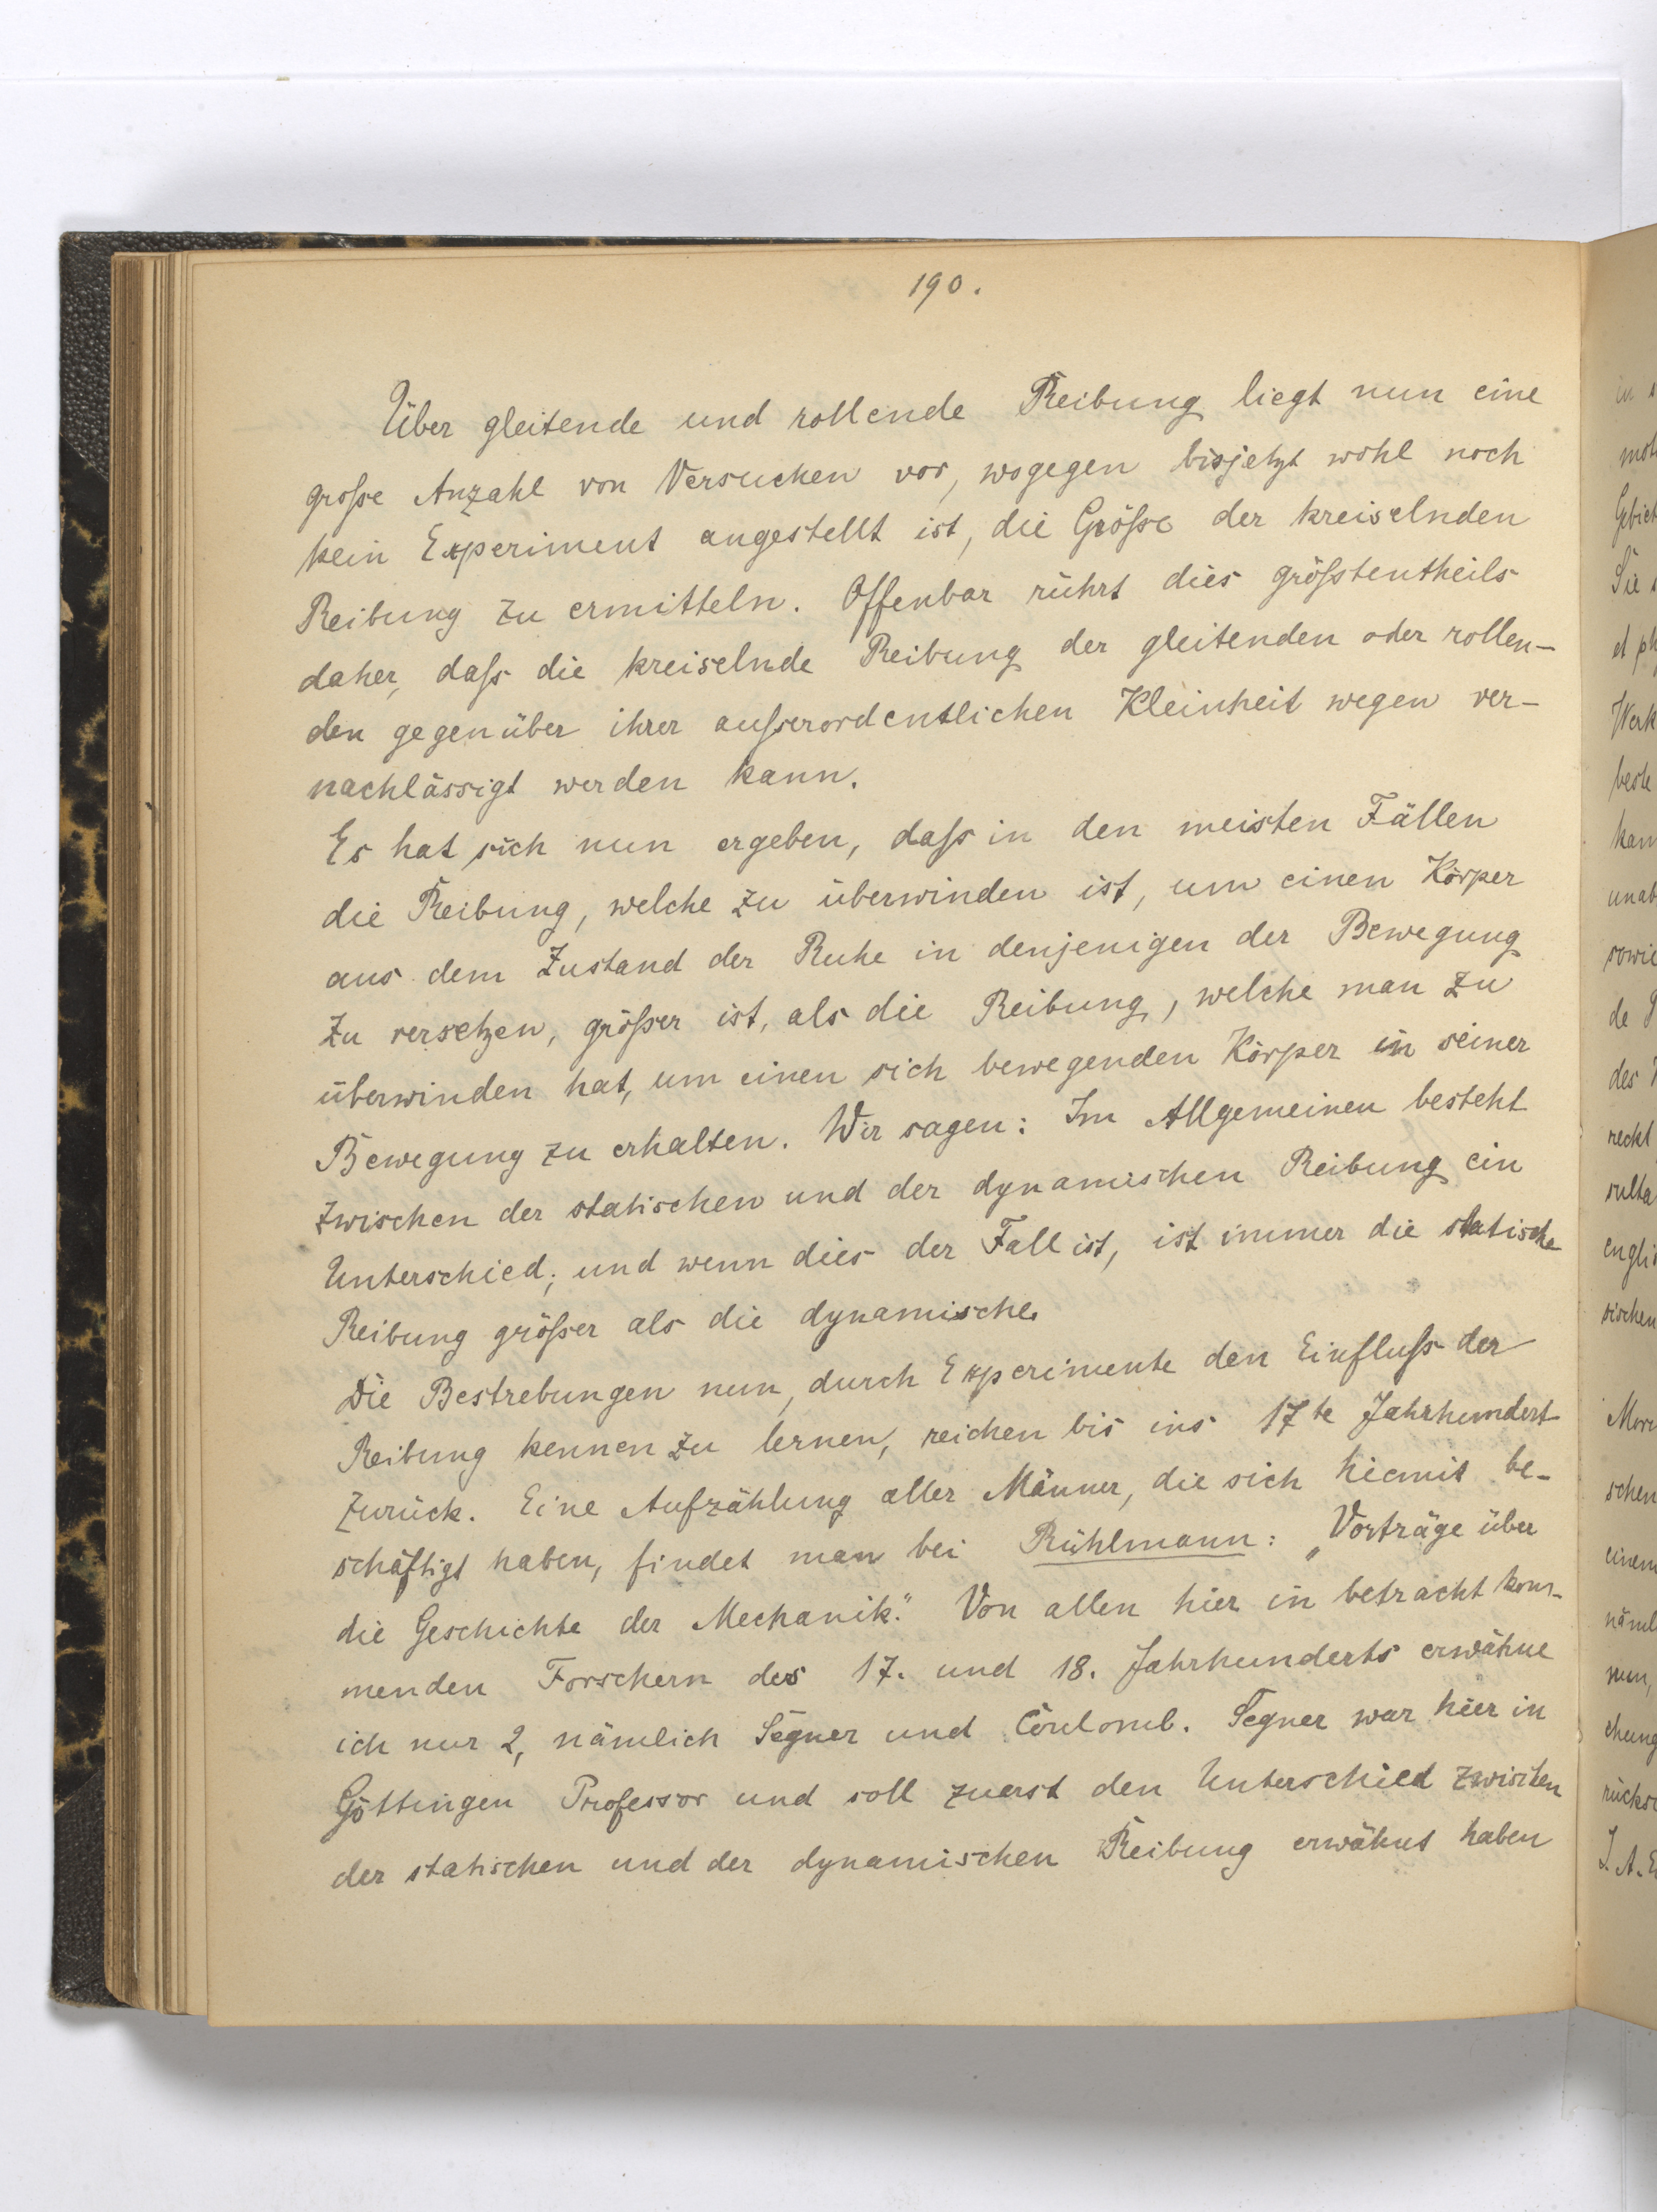 190.
Über gleitende und rollende Reibung liegt nun eine
große Anzahl von Versuchen vor, wogegen bisjetzt wohl noch
kein Experiment angestellt ist, die Größe der kreiselnden
Reibung zu ermitteln. Offenbar rührt dies größtentheils
daher, daß die kreiselnde Reibung der gleitenden oder rollen-
den gegenüber ihrer außerordentlichen Kleinheit wegen ver-
nachlässigt werden kann.
Es hat sich nun ergeben, daß in den meisten Fällen
die Reibung, welche zu überwinden ist, um einen Körper
aus dem Zustand der Ruhe in denjenigen der Bewegung
zu versetzen, größer ist, als die Reibung, welche man zu
überwinden hat, um einen sich bewegenden Körper in seiner
Bewegung zu erhalten. Wir sagen: Im Allgemeinen besteht
zwischen der statischen und der dynamischen Reibung ein
Unterschied; und wenn dies der Fall ist, ist immer die statische
Reibung größer als die dynamische.
Die Bestrebungen nun, durch Experimente den Einfluß der
Reibung kennen zu lernen, reichen bis ins 17te Jahrhundert
zurück. Eine Aufzählung aller Männer, die sich hiemit be-
schäftigt haben, findet man bei Rühlmann: „Vorträge über
die Geschichte der Mechanik." Von allen hier in betracht kom-
menden Forschern des 17. und 18. Jahrhunderts erwähne
ich nur 2, nämlich Segner und Coulomb. Segner war hier in
Göttingen Professor und soll zuerst den Unterschied zwischen
der statischen und der dynamischen Reibung erwähnt haben